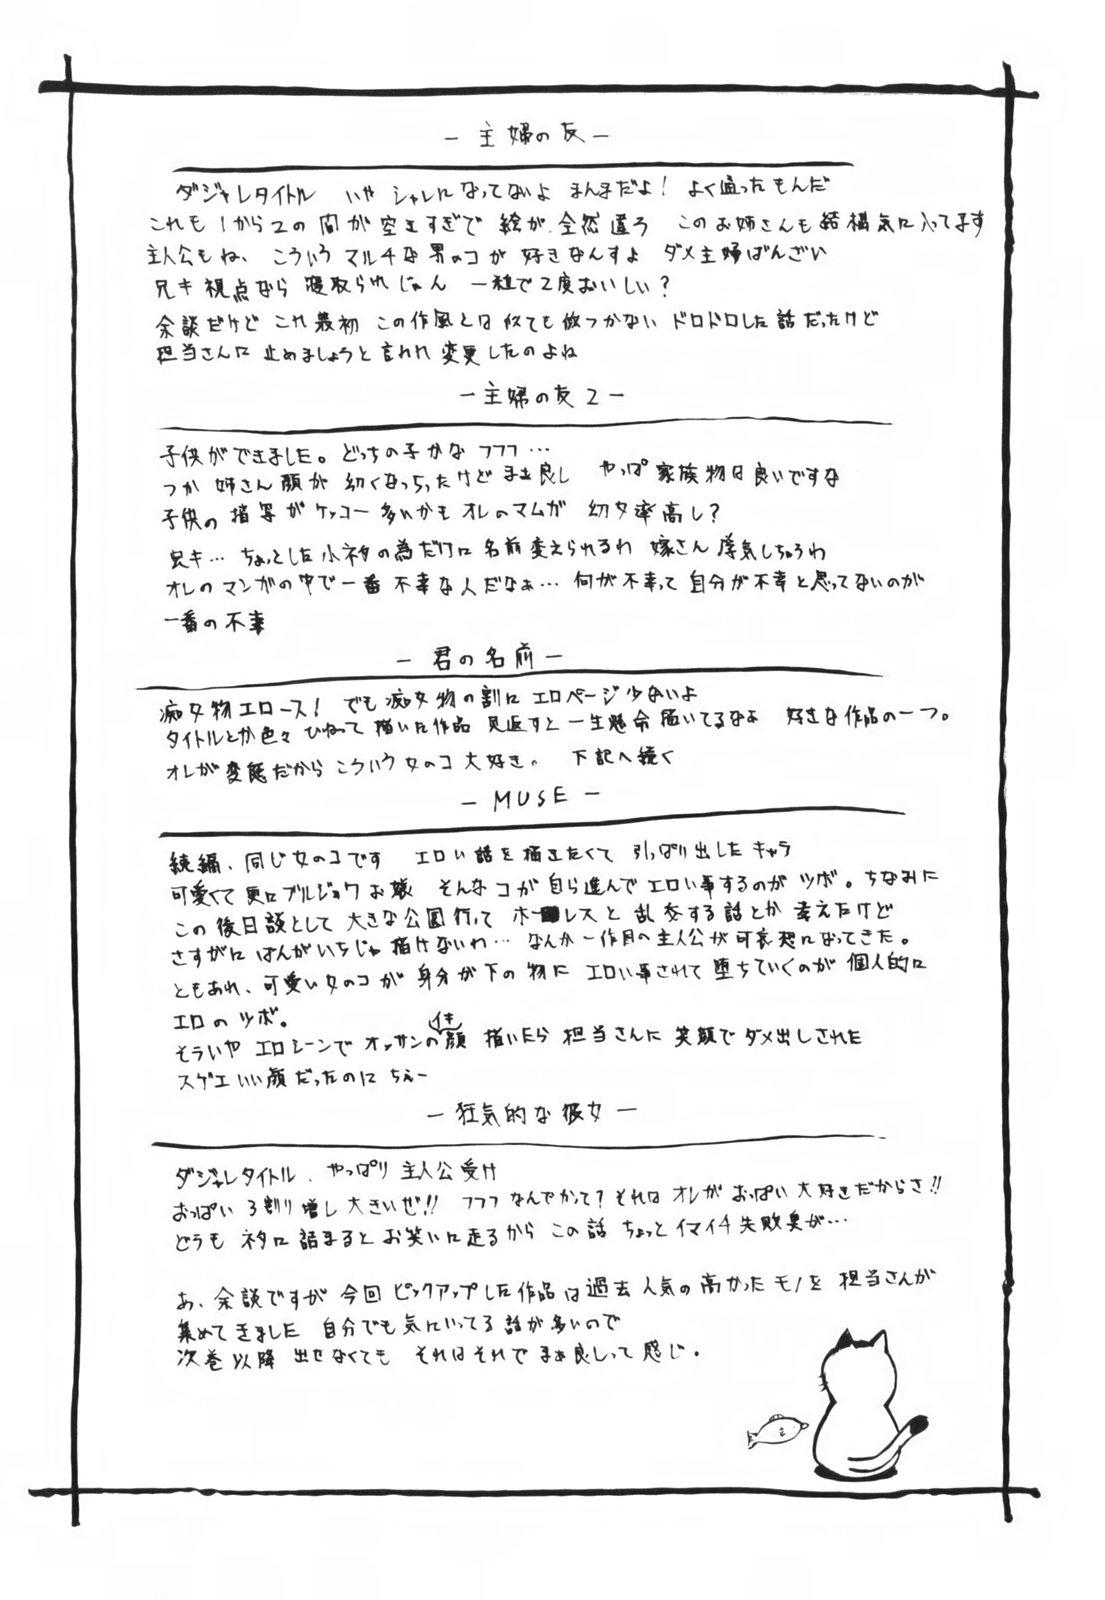 － 主婦の友 －
ダジャレタイトル いや シャレになってないよ まんまだよ! よく通ったもんだ
これも1から2の間が空きすぎで 絵が全然違う このお姉さんも結構気に入ってます
主人公もね、こういうマルチな男のコが好きなんすよ ダメ主婦ばんざい
兄キ視点なら 寝取られじゃん 一粒で2度おいしい?
余談だけど これ最初 この作風とは似ても似つかない ドロドロした話だったけど
担当さんに 止めましょうと言われ 変更したのよね
－主婦の友2－
子供ができました。どっちの子かな フフフ…
つか 姉さん顔が幼くなっちったけど まぁ良し やっぱ 家族物は良いですな
子供の描写がケッコー多いかも オレのマンガ 幼女率高し?
兄キ… ちょっとした小ネタの為だけに 名前変えられるわ 嫁さん浮気しちゃうわ
オレのマンガの中で一番不幸な人だなぁ… 何が不幸って 自分が不幸と思ってないのが
一番の不幸
－ 君の名前 －
痴女物エロース! でも痴女物の割に エロページ少ないよ
タイトルとか色々 ひねって描いた作品 見返すと一生懸命描いてるなぁ 好きな作品の一つ。
オレが変態だから こういう女のコ大好き。 下記へ続く
－ MUSE －
続編、同じ女のコです エロい話を描きたくて 引っぱり出したキャラ
可愛くて更にブルジョワお嬢 そんなコが自ら進んでエロい事するのがツボ。ちなみに
この後日談として 大きな公園行って ホー レスと乱交する話とか考えたけど
さすがにばんがいちじゃ描けないわ… なんか一作目の主人公が可哀想になってきた。
ともあれ、可愛い女のコが身分が下の物に エロい事されて堕ちていくのが個人的に
エロのツボ。
そういや エロシーンで オッサンのイキ顔 描いたら 担当さんに 笑顔でダメ出しされた
スゲエいい顔だったのに ちぇー
－狂気的な彼女 －
ダジャレタイトル、やっぱり 主人公受け
おっぱい3割り増し大きいぜ!! フフフ なんでかって? それは オレがおっぱい大好きだからさ!!
どうも ネタに詰まると お笑いに走るから この話 ちょっとイマイチ失敗臭が…
あ、余談ですが 今回 ピックアップした作品は過去人気の高かったモノを 担当さんが
集めてきました 自分でも気にいってる話が多いので
次巻以降 出せなくても それはそれで まぁ良しって感じ。